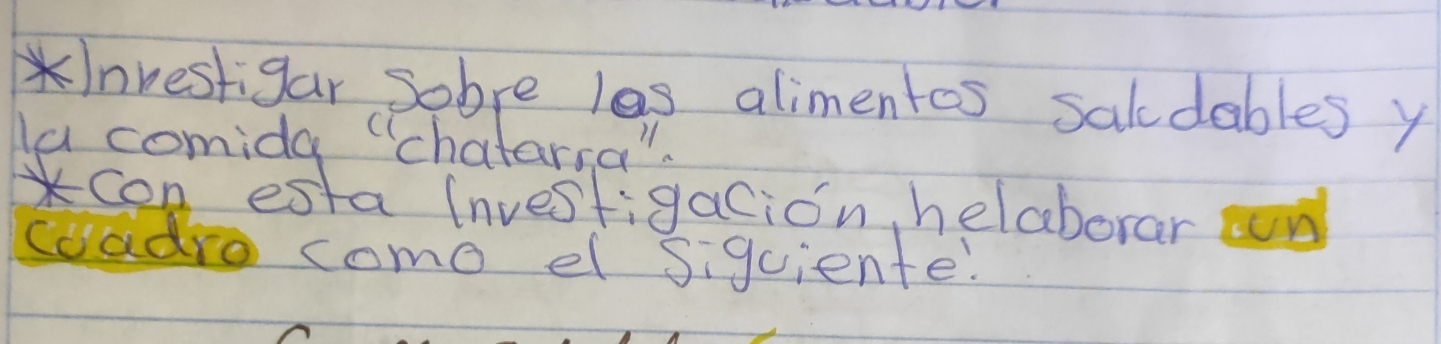 *Investigar sobre los alimentos saludables y
la comida "chatarra".
*Con esta investigación, helaborar un
cuadro como el siguiente: